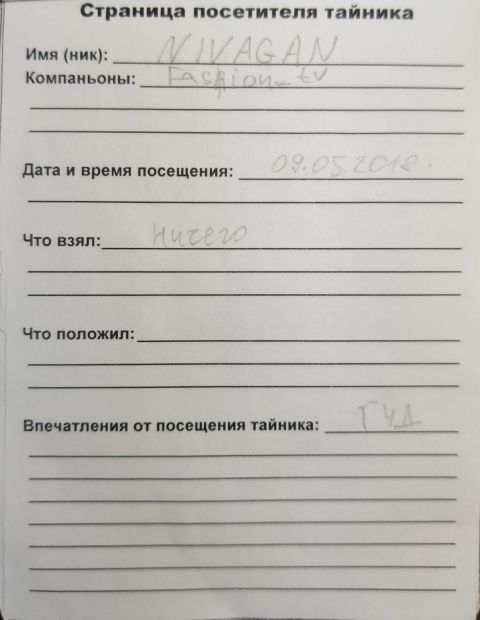 Страница посетителя тайника
Имя (ник): NIVAGAN
Компаньоны: Fashion_tv
Дата и время посещения: 09.05.2018.
Что взял: Ничего
Что положил:
Впечатления от посещения тайника: ГУД